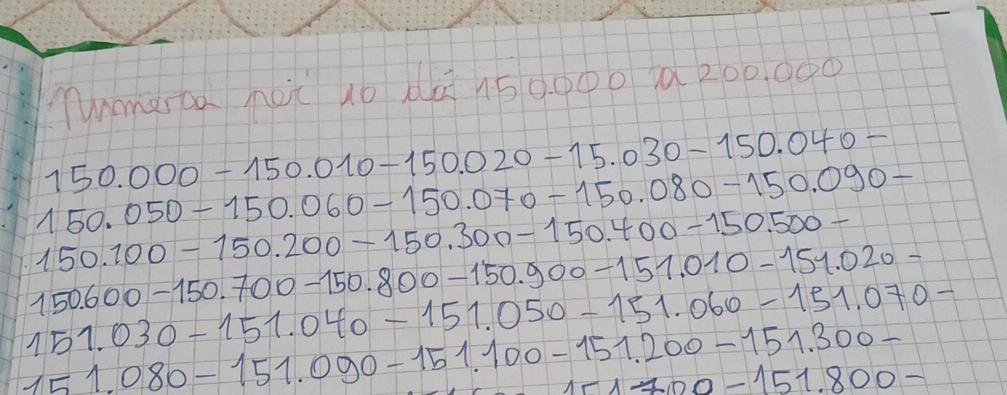 150.000 a 200.000
150.000 - 150.010 - 150.020 - 15.030 - 150.040 -
150.050 - 150.060 - 150.070 - 150.080 - 150.090 -
150.100 - 150.200 - 150.300 - 150.400 - 150.500 -
150.600 - 150.700 - 150.800 - 150.900 - 151.010 - 151.020 -
151.030 - 151.040 - 151.050 - 151.060 - 151.070 -
151.080 - 151.090 - 151.100 - 151.200 - 151.300 -
- 151.800 -